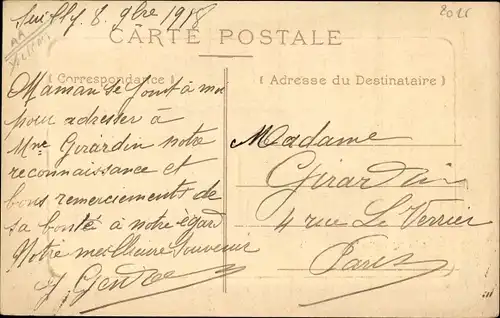 Suilly. 8. 9bre 1918
CARTE POSTALE
( Correspondance )
( Adresse du Destinataire )
Maman se joint à moi
pour adresser à
Mme Girardin notre
reconnaissance et
bons remerciements de
sa bonté à notre égard
Notre meilleure Souvenir
Madame
Girardin
4 rue Le Verrier
Paris